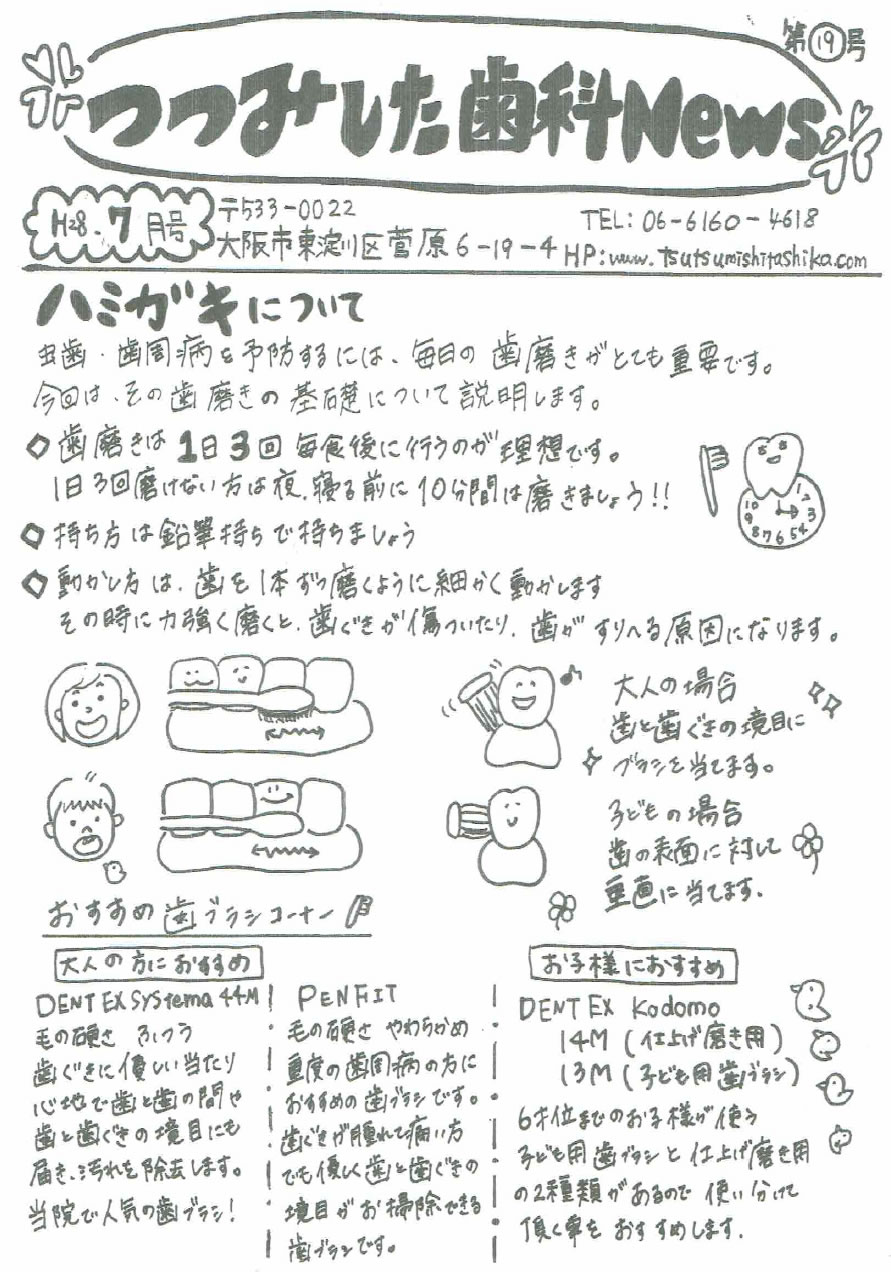 第19号
つつみした歯科News
H28.7月号
〒533-0022
大阪市東淀川区菅原6-19-4
TEL: 06-6160-4618
HP: www.tsutsumishitashika.com
ハミガキについて
虫歯・歯周病を予防するには、毎日の歯磨きがとても重要です。
今回は、その歯磨きの基礎について説明します。
◇歯磨きは1日3回毎食後に行うのが理想です。
1日3回磨けない方は夜、寝る前に10分間は磨きましょう!!
◇持ち方は鉛筆持ちで持ちましょう
◇動かし方は、歯を1本ずつ磨くように細かく動かします
その時に力強く磨くと、歯ぐきが傷ついたり、歯がすりへる原因になります。
大人の場合
歯と歯ぐきの境目に
ブラシを当てます。
子どもの場合
歯の表面に対して
垂直に当てます.
おすすめ歯ブラシコーナー
大人の方におすすめ
DENT EX Systema 44M
毛の硬さ ふつう
歯ぐきに優しい当たり
心地で歯と歯の間や
歯と歯ぐきの境目にも
届き、汚れを除去します。
当院で人気の歯ブラシ!
PENFIT
毛の硬さ やわらかめ
重度の歯周病の方に
おすすめの歯ブラシです。
歯ぐきが腫れて痛い方
でも優しく歯と歯ぐきの
境目がお掃除できる
歯ブラシです。
お子様におすすめ
DENT EX Kodomo
14M (仕上げ磨き用)
13M (子ども用歯ブラシ)
6才位までのお子様が使う
子ども用歯ブラシと仕上げ磨き用
の2種類があるので使い分けて
頂く事をおすすめします.